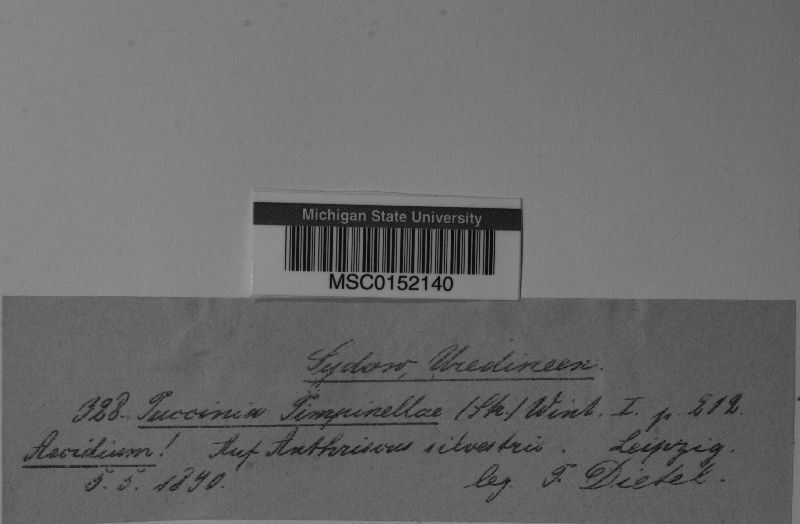 Michigan State University
MSC0152140
Sydow, Uredineen.
328. Puccinia Pimpinellae (Str.) Wint. I. p. 212.
Aecidium! Auf Anthriscus silvestris. Leipzig.
5. 5. 1890. leg. P. Dietel.